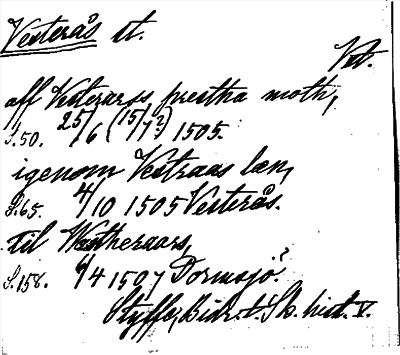 Vesterås st.
Vst.
aff Vesterarss prestha moth,
S.50. 25/6 (15/7?) 1505.
igenom Vestraas læn,
S.65. 4/10 1505 Vesterås.
til Westheraars,
S.158. 6/4 1507 Dormsjö?
Styffe, Bidr. t. Sk. hist. V.